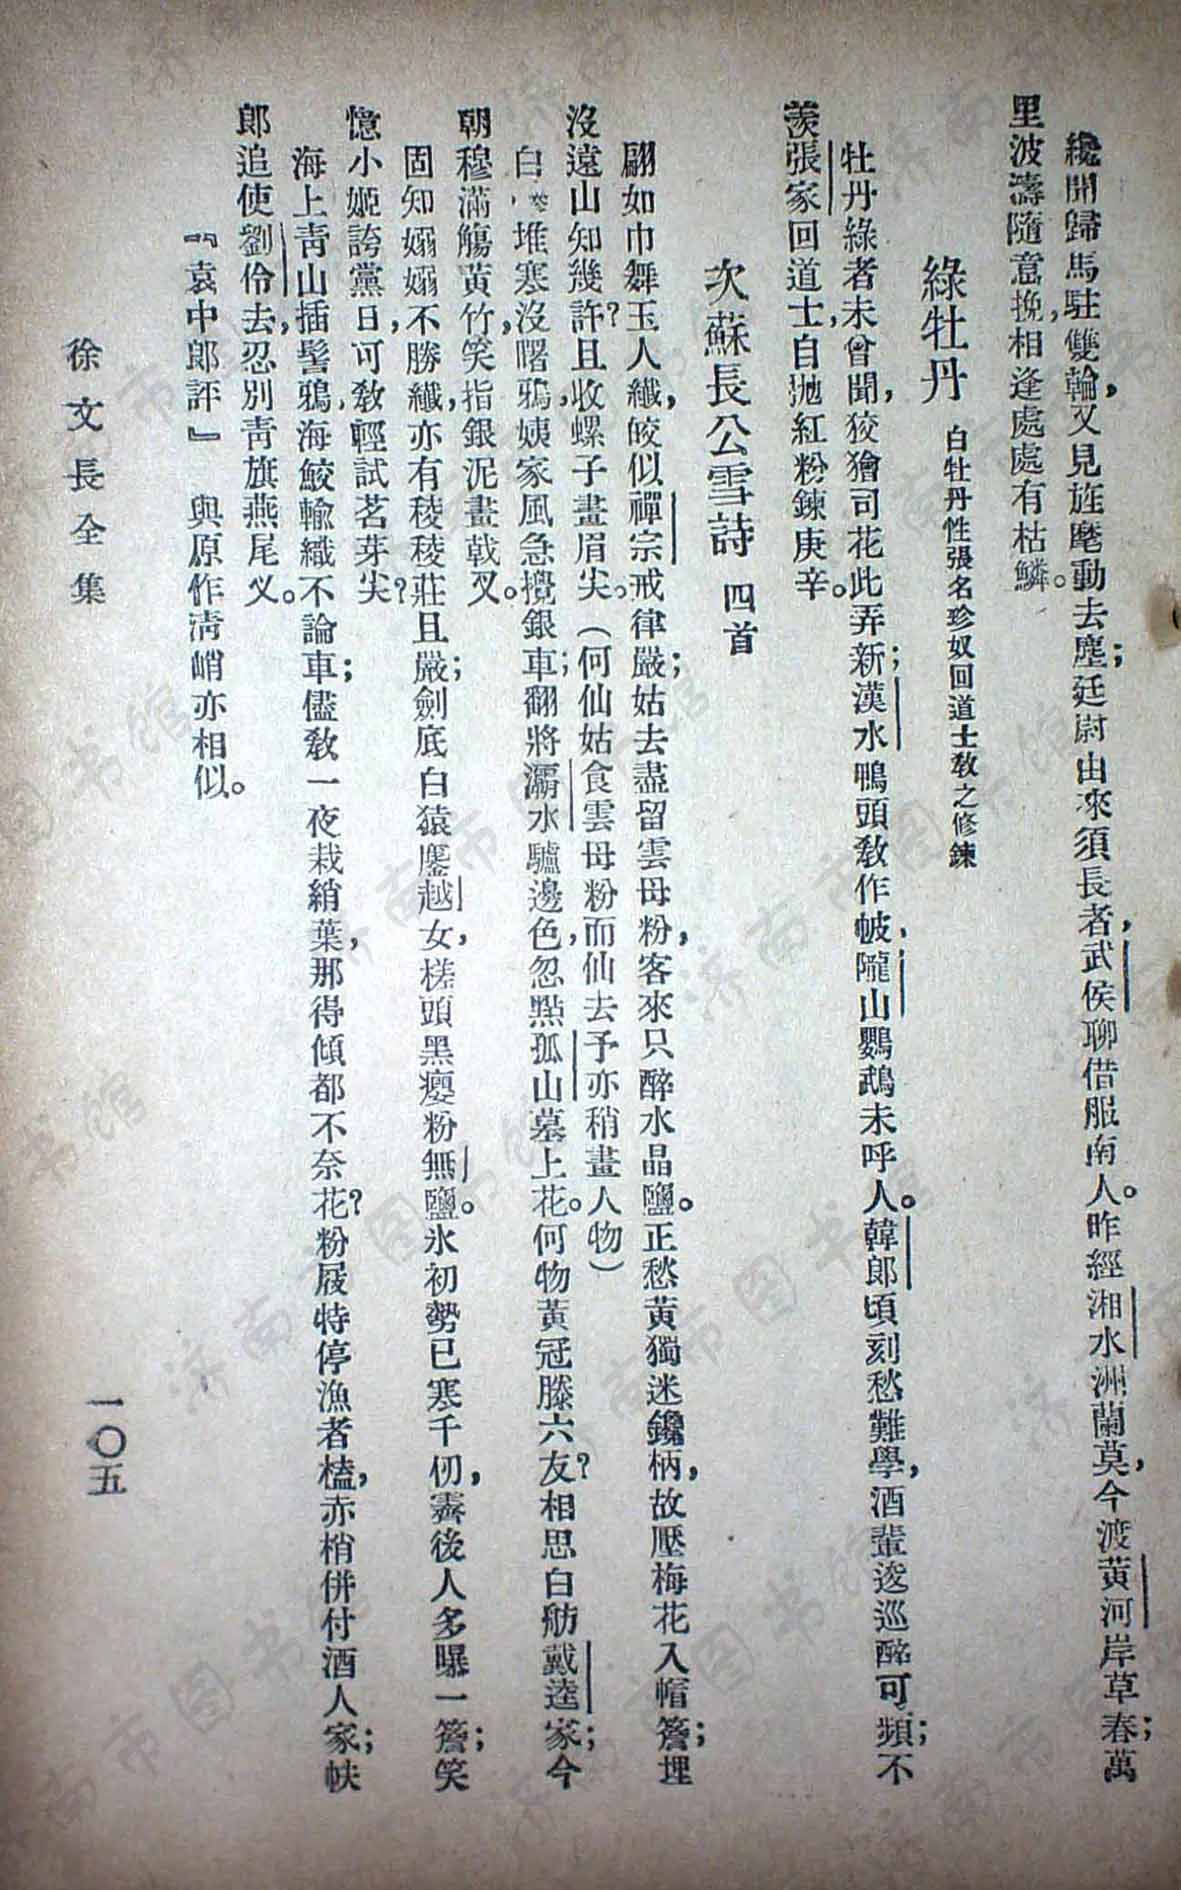 纔開歸馬駐雙輪，又見旌麾動去塵；廷尉由來須長者，武侯聊借服南人。昨經湘水洲蘭莫，今渡黄河岸草春；萬
里波濤隨意挽，相逢處處有枯鱗。
綠牡丹 白牡丹性張名珍奴回道士敎之修鍊
牡丹綠者未曾聞，狡獪司花此弄新；漢水鴨頭敎作帔，隴山鸚鵡未呼人。韓郎頃刻愁難學，酒輩逡巡醉可頻；不
羨張家回道士，自拋紅粉鍊庚辛。
次蘇長公雪詩 四首
翩如巾舞玉人纖，皎似禪宗戒律嚴；姑去盡留雲母粉，客來只醉水晶鹽。正愁黃獨迷鑱柄，故壓梅花入帽簷；埋
沒遠山知幾許？且收螺子畫眉尖。（何仙姑食雲母粉而仙去予亦稍畫人物）
白堆寒沒曙鴉，姨家風急攪銀車；翻將灞水驢邊色，忽點孤山墓上花。何物黃冠滕六友？相思白舫戴逵家；今
朝穆滿觴黃竹，笑指銀泥畫戟叉。
固知嫋嫋不勝纖，亦有稜稜莊且嚴；劍底白猿鏖越女，槎頭黑瘿粉無鹽。氷初勢已寒千仞，霽後人多曝一簷；笑
憶小姬誇黨日，可敎輕試茗芽尖？
海上靑山插髻鴉，海鮫輸織不論車；儘敎一夜栽綃葉，那得傾都不奈花？粉屐特停漁者榼，赤梢併付酒人家；帙
郎追使劉伶去，忍別靑旗燕尾叉。
『袁中郎評』 與原作淸峭亦相似。
徐文長全集
一〇五
济南市图书馆